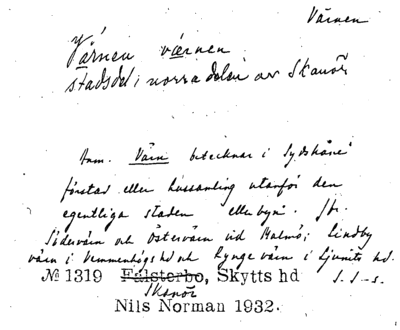 Värnen
Värnen værnen
stadsdel i norra delen av Skanör
Anm. Värn betecknar i Sydskåne
förstad eller hussamling utanför den
egentliga staden eller byn. Jfr.
Södervärn och Östervärn vid Malmö; Lindby
värn i Vemmenhögs hd och Lyngevärn i Ljunits hd.
№ 1319 Falsterbo, Skytts hd
S. S-s.
Skanör
Nils Norman 1932.